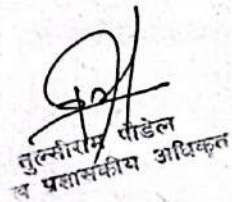 तुल्सीराम पौडेल
व प्रशासकीय अधिकृत